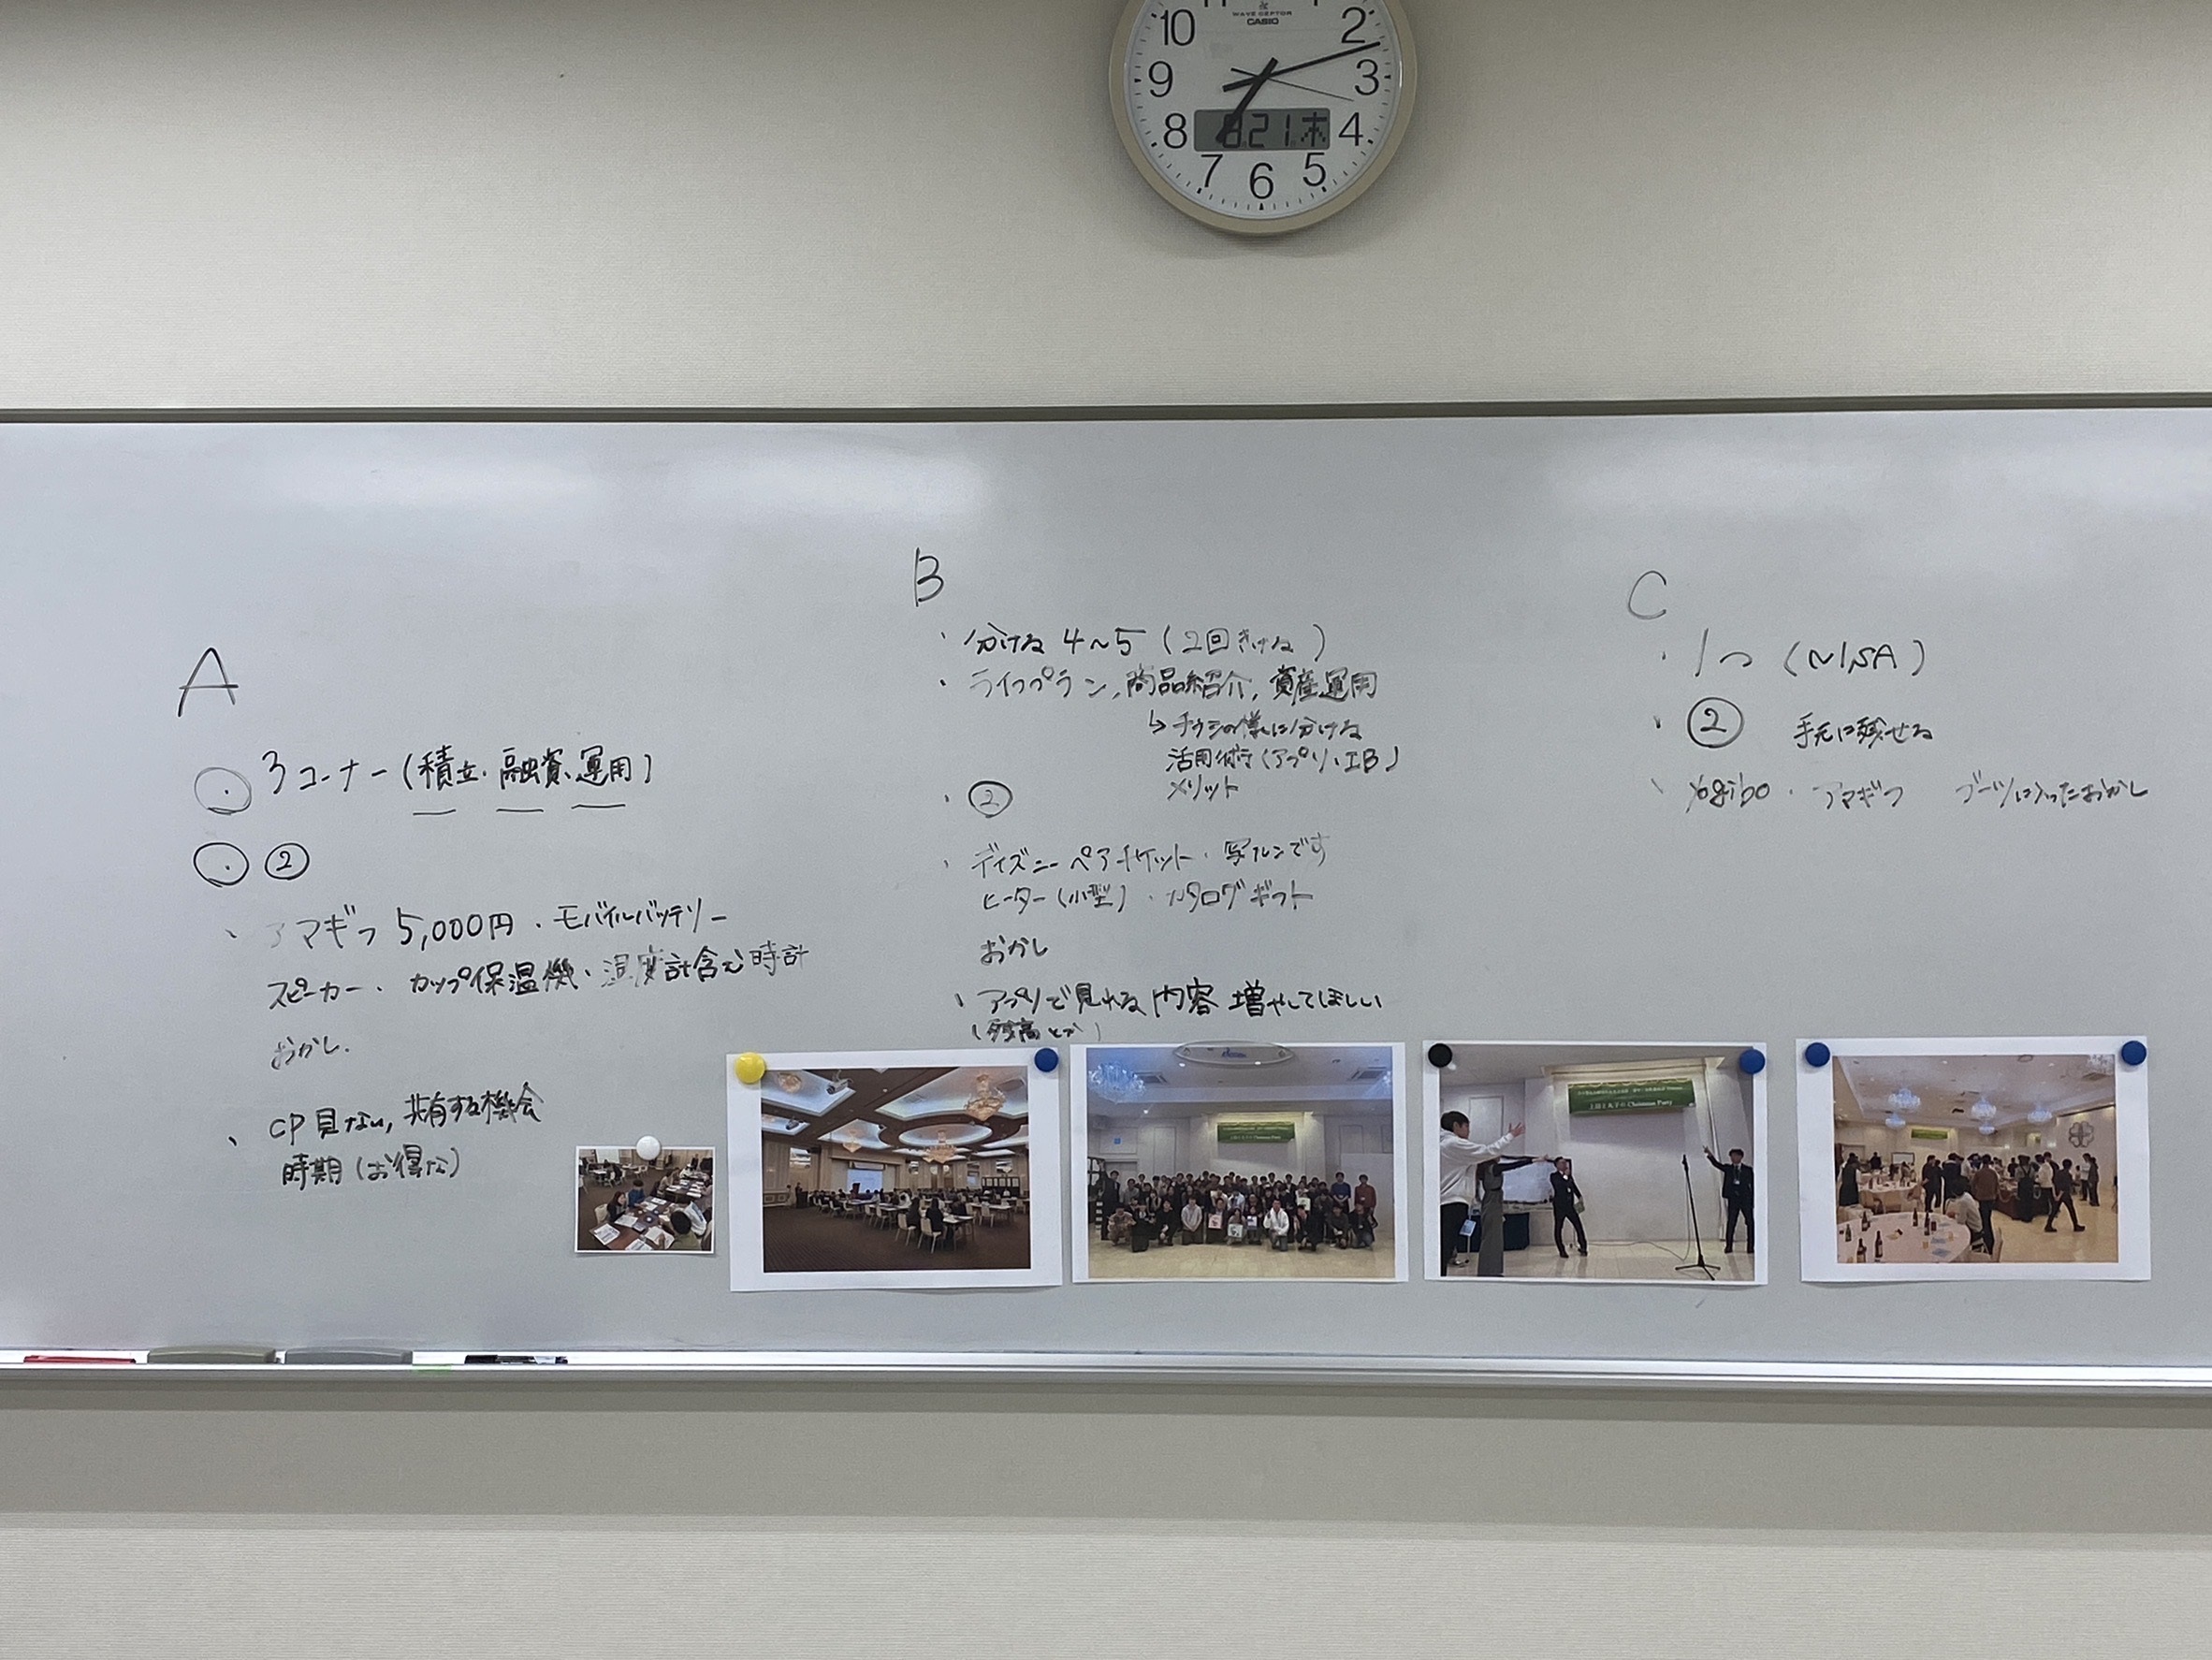 10
2
WAVE CEPTOR
CASIO
9
3
8
8 21 木
4
7
6
5
A
・3コーナー(積立・融資、運用)
・②
・アマギフ 5,000円・モバイルバッテリー
スピーカー・カップ保温機・温度計含む時計
おかし.
・CP見ない, 共有する機会
時期(お得な)
B
・分ける 4~5 (2回きける)
・ライフプラン, 商品紹介, 資産運用
↳チラシの様に分ける
活用術(アプリ、IB)
メリット
・②
・ディズニーペアチケット・写ルンです
ヒーター(小型)・カタログギフト
おかし
・アプリで見れる内容増やしてほしい
(残高とか)
C
・1つ (NISA)
・② 手元に残せる
・Yogibo・アマギフ ブーツに入ったおかし
Christmas Party
Christmas Party